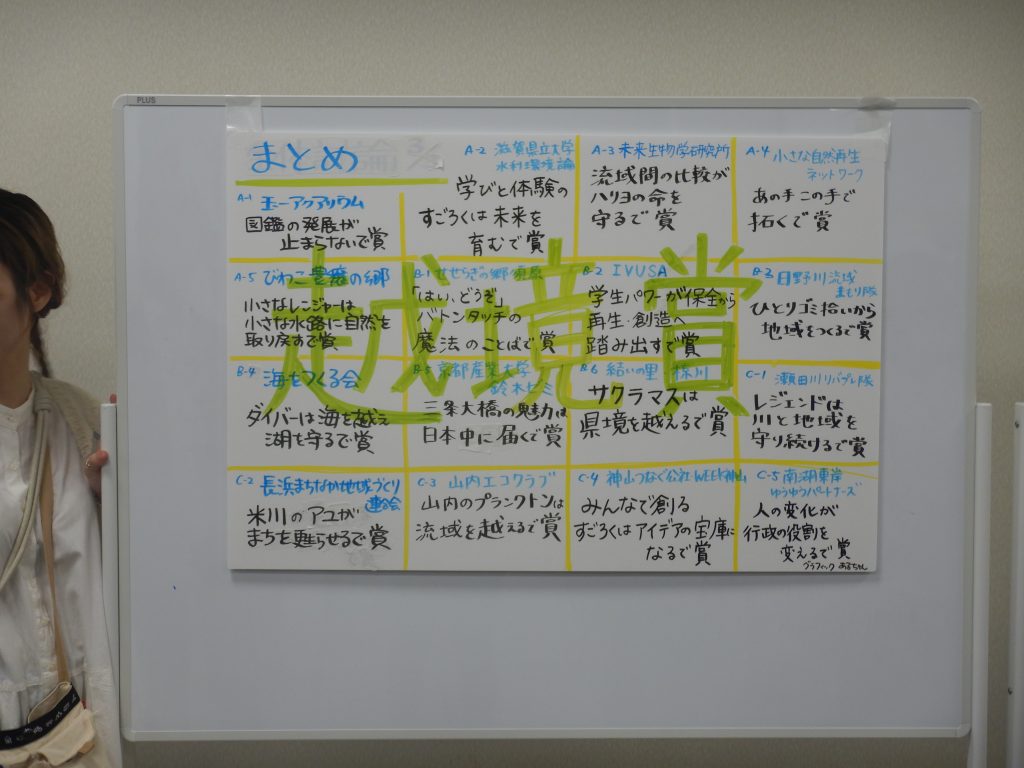 PLUS
まとめ
A-1 玉一アクアリウム
図鑑の発展が
止まらないで賞
A-2 滋賀県立大学
水利環境論
学びと体験の
すごろくは未来を
育むで賞
A-3 未来生物学研究所
流域間の比較が
ハリヨの命を
守るで賞
A-4 小さな自然再生
ネットワーク
あの手この手で
拓くで賞
越境賞
A-5 びわこ豊穣の郷
小さなレンジャーは
小さな水路に自然を
取り戻すで賞
B-1 せせらぎの郷須原
「はい、どうぞ」
バトンタッチの
魔法のことばで賞
B-2 IVUSA
学生パワーが保全から
再生・創造へ
踏み出すで賞
B-3 日野川流域
まもり隊
ひとりゴミ拾いから
地域をつくるで賞
B-4 海をつくる会
ダイバーは海を越え
湖を守るで賞
B-5 京都産業大学
鈴木ゼミ
三条大橋の魅力は
日本中に届くで賞
B-6 結いの里・椋川
サクラマスは
県境を越えるで賞
C-1 瀬田川リバプレ隊
レジェンドは
川と地域を
守り続けるで賞
C-2 長浜まちなか地域づくり
連合会
米川のアユが
まちを甦らせるで賞
C-3 山内エコクラブ
山内のプランクトンは
流域を越えるで賞
C-4 神山つなぐ公社 WEEK神山
みんなで創る
すごろくはアイデアの宝庫に
なるで賞
C-5 南湖東岸
ゆうゆうパートナーズ
人の変化が
行政の役割を
変えるで賞
グラフィック あるちゃん